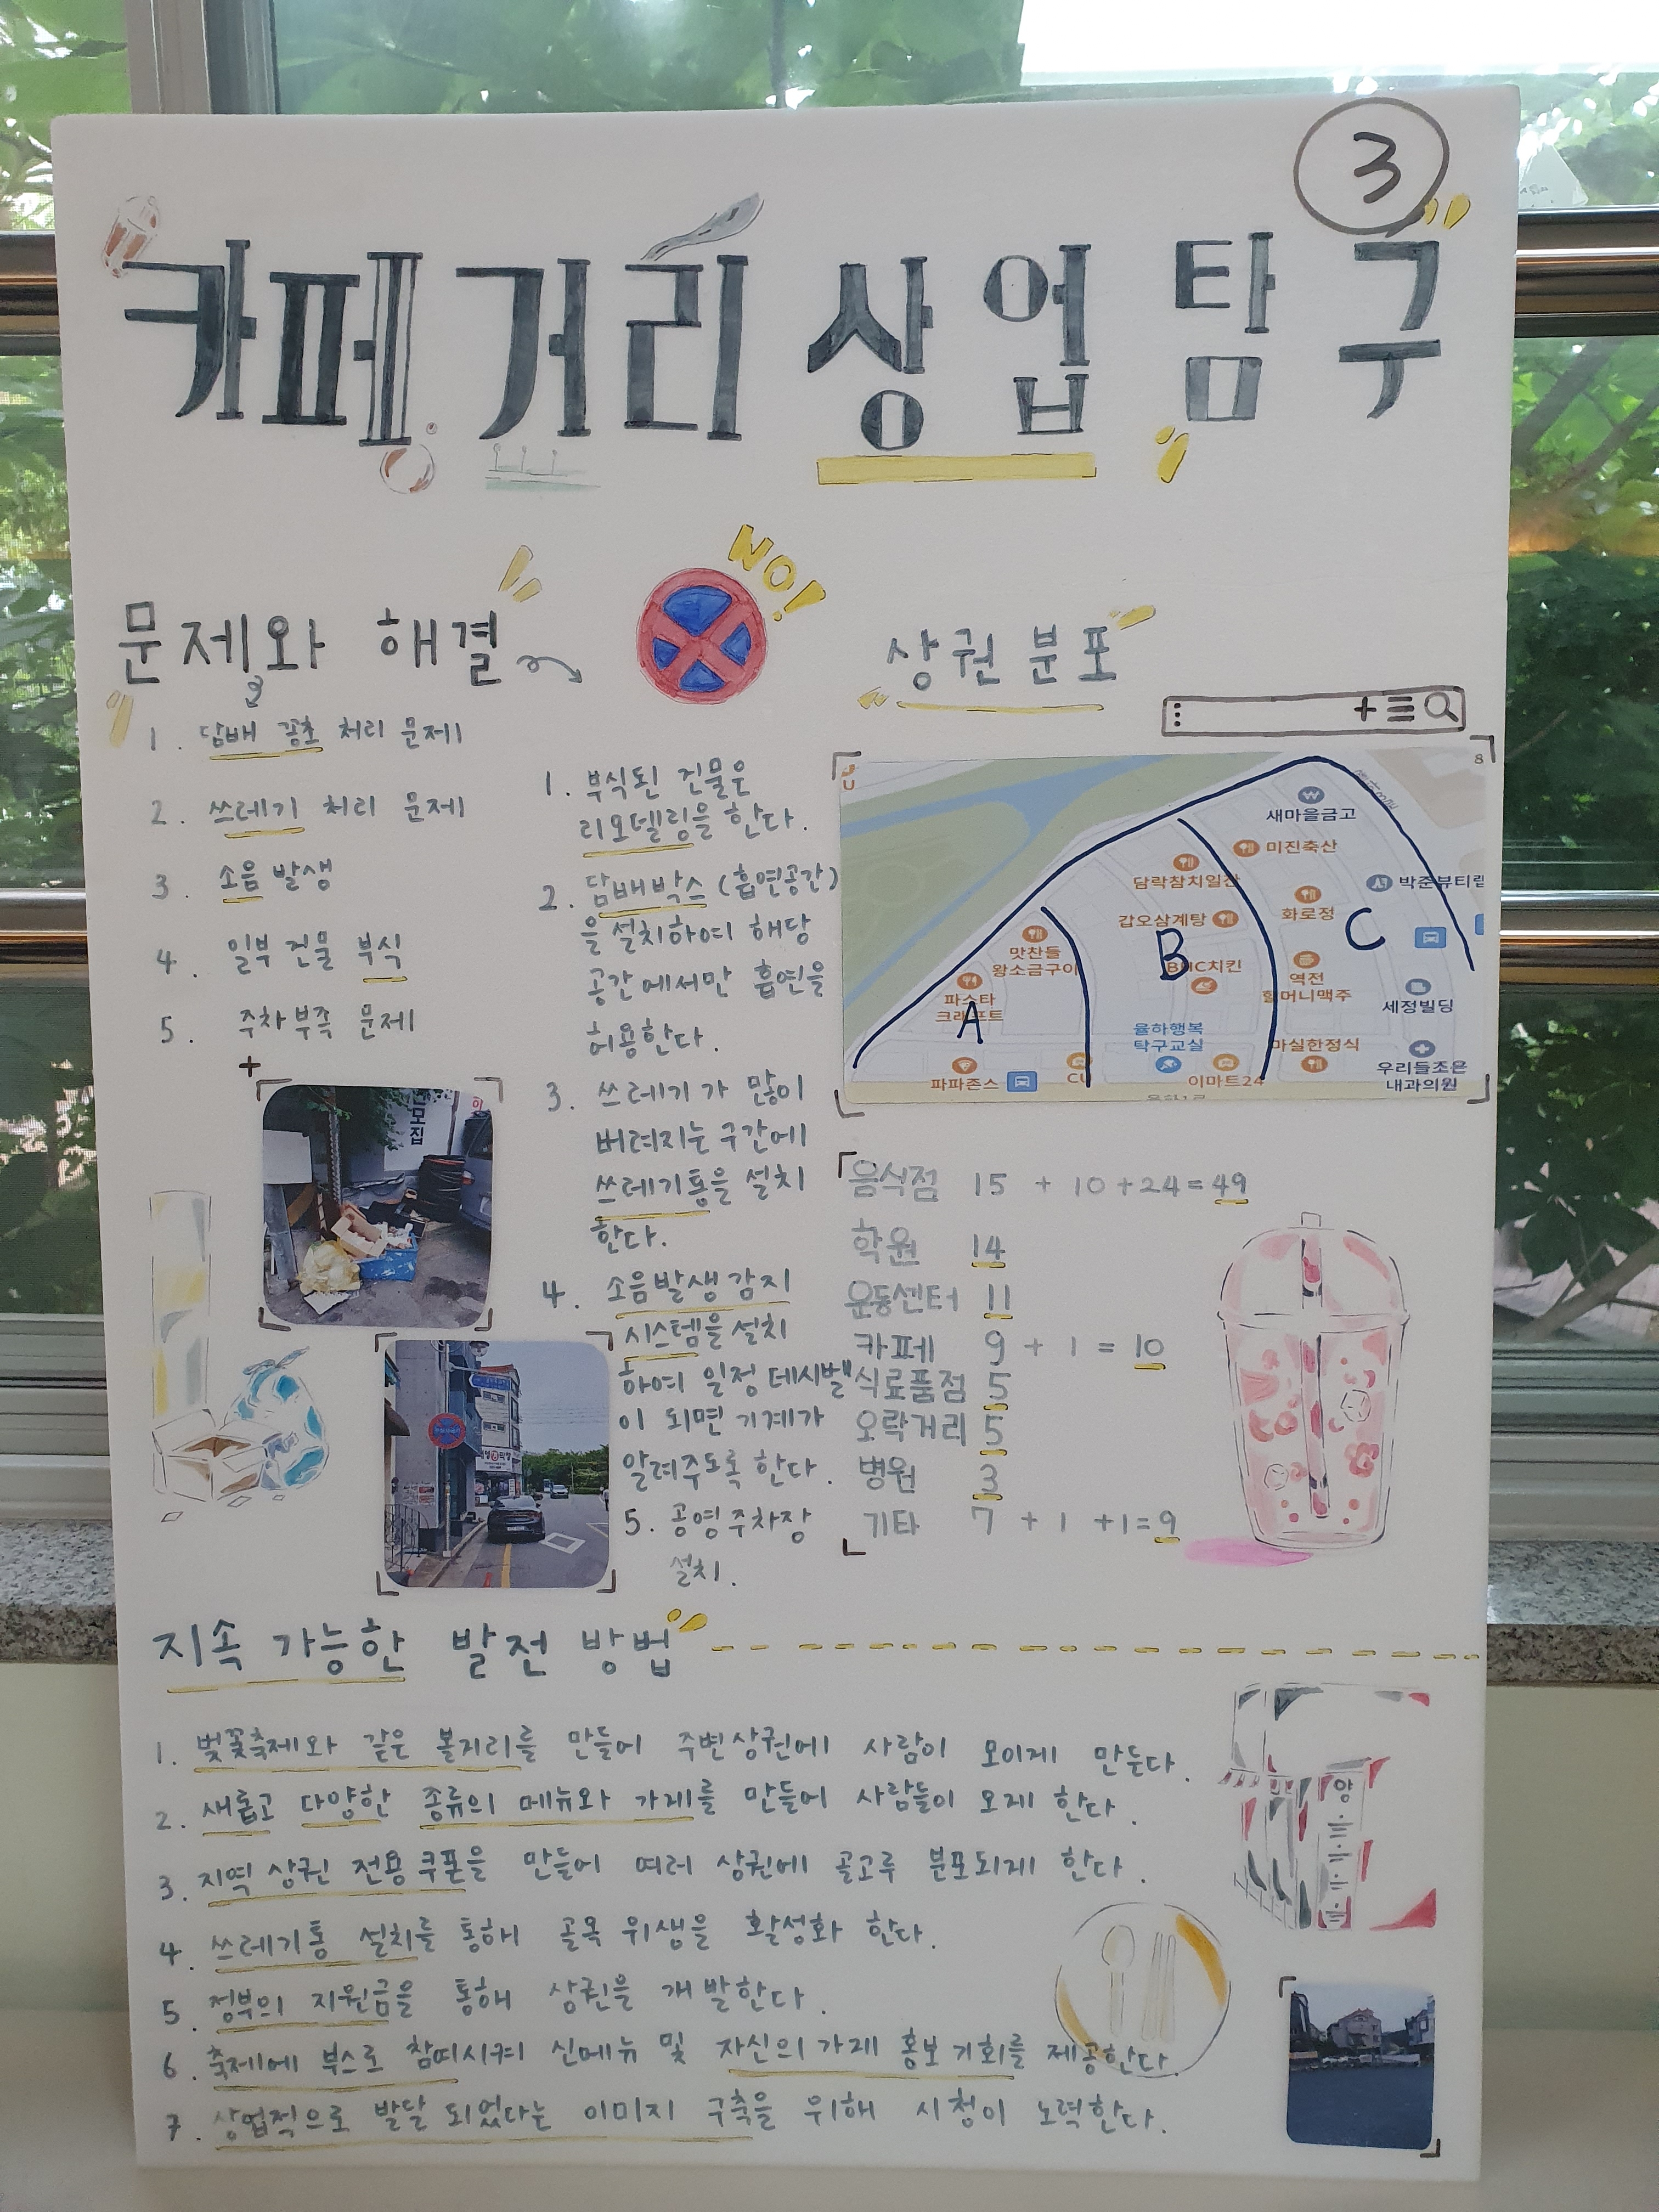 3
카페거리 상업 탐구
문제와 해결
NO!
1. 담배 꽁초 처리 문제
2. 쓰레기 처리 문제
3. 소음 발생
4. 일부 건물 부식
5. 주차부족 문제
1. 부식된 건물은
리모델링을 한다.
2. 담배박스 (흡연공간)
을 설치하여 해당
공간에서만 흡연을
허용한다.
3. 쓰레기가 많이
버려지는 구간에
쓰레기통을 설치
한다.
4. 소음발생 감지
시스템을 설치
하여 일정 데시벨
이 되면 기계가
알려주도록 한다.
5. 공영주차장
설치.
모집
상권 분포
8
새마을금고
미진축산
담락참치일산
박준뷰티랩
화로정
갑오삼계탕
C
맛찬들
왕소금구이
B
BHC치킨
역전
할머니맥주
파스타
크래프트
A
세정빌딩
율하행복
탁구교실
마실한정식
우리들조은
내과의원
파파존스
CU
이마트24
음식점 15 + 10 + 24 = 49
학원 14
운동센터 11
카페 9 + 1 = 10
식료품점 5
오락거리 5
병원 3
기타 7 + 1 + 1 = 9
지속 가능한 발전 방법
1. 벚꽃축제와 같은 볼거리를 만들어 주변상권에 사람이 모이게 만든다.
2. 새롭고 다양한 종류의 메뉴와 가게를 만들어 사람들이 오게 한다.
3. 지역 상권 전용 쿠폰을 만들어 여러 상권에 골고루 분포되게 한다.
4. 쓰레기통 설치를 통해 골목 위생을 활성화 한다.
5. 정부의 지원금을 통해 상권을 개발한다.
6. 축제에 부스로 참여시켜 신메뉴 및 자신의 가게 홍보 기회를 제공한다.
7. 상업적으로 발달 되었다는 이미지 구축을 위해 시청이 노력한다.